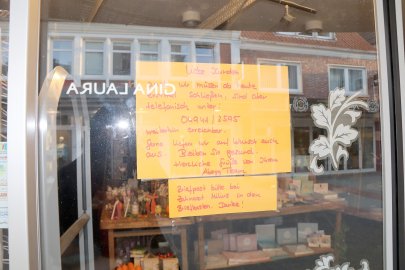 Liebe Kunden,
wir müssen ab heute
schließen, sind aber
telefonisch unter:
04941/2505
weiterhin erreichbar.
Gerne liefern wir auf Wunsch auch
aus. Bleiben Sie gesund
Herzliche Grüße von Ihrem
Team
Briefpost bitte bei
Zahnarzt in den
Briefkasten. Danke!
GINA LAURA